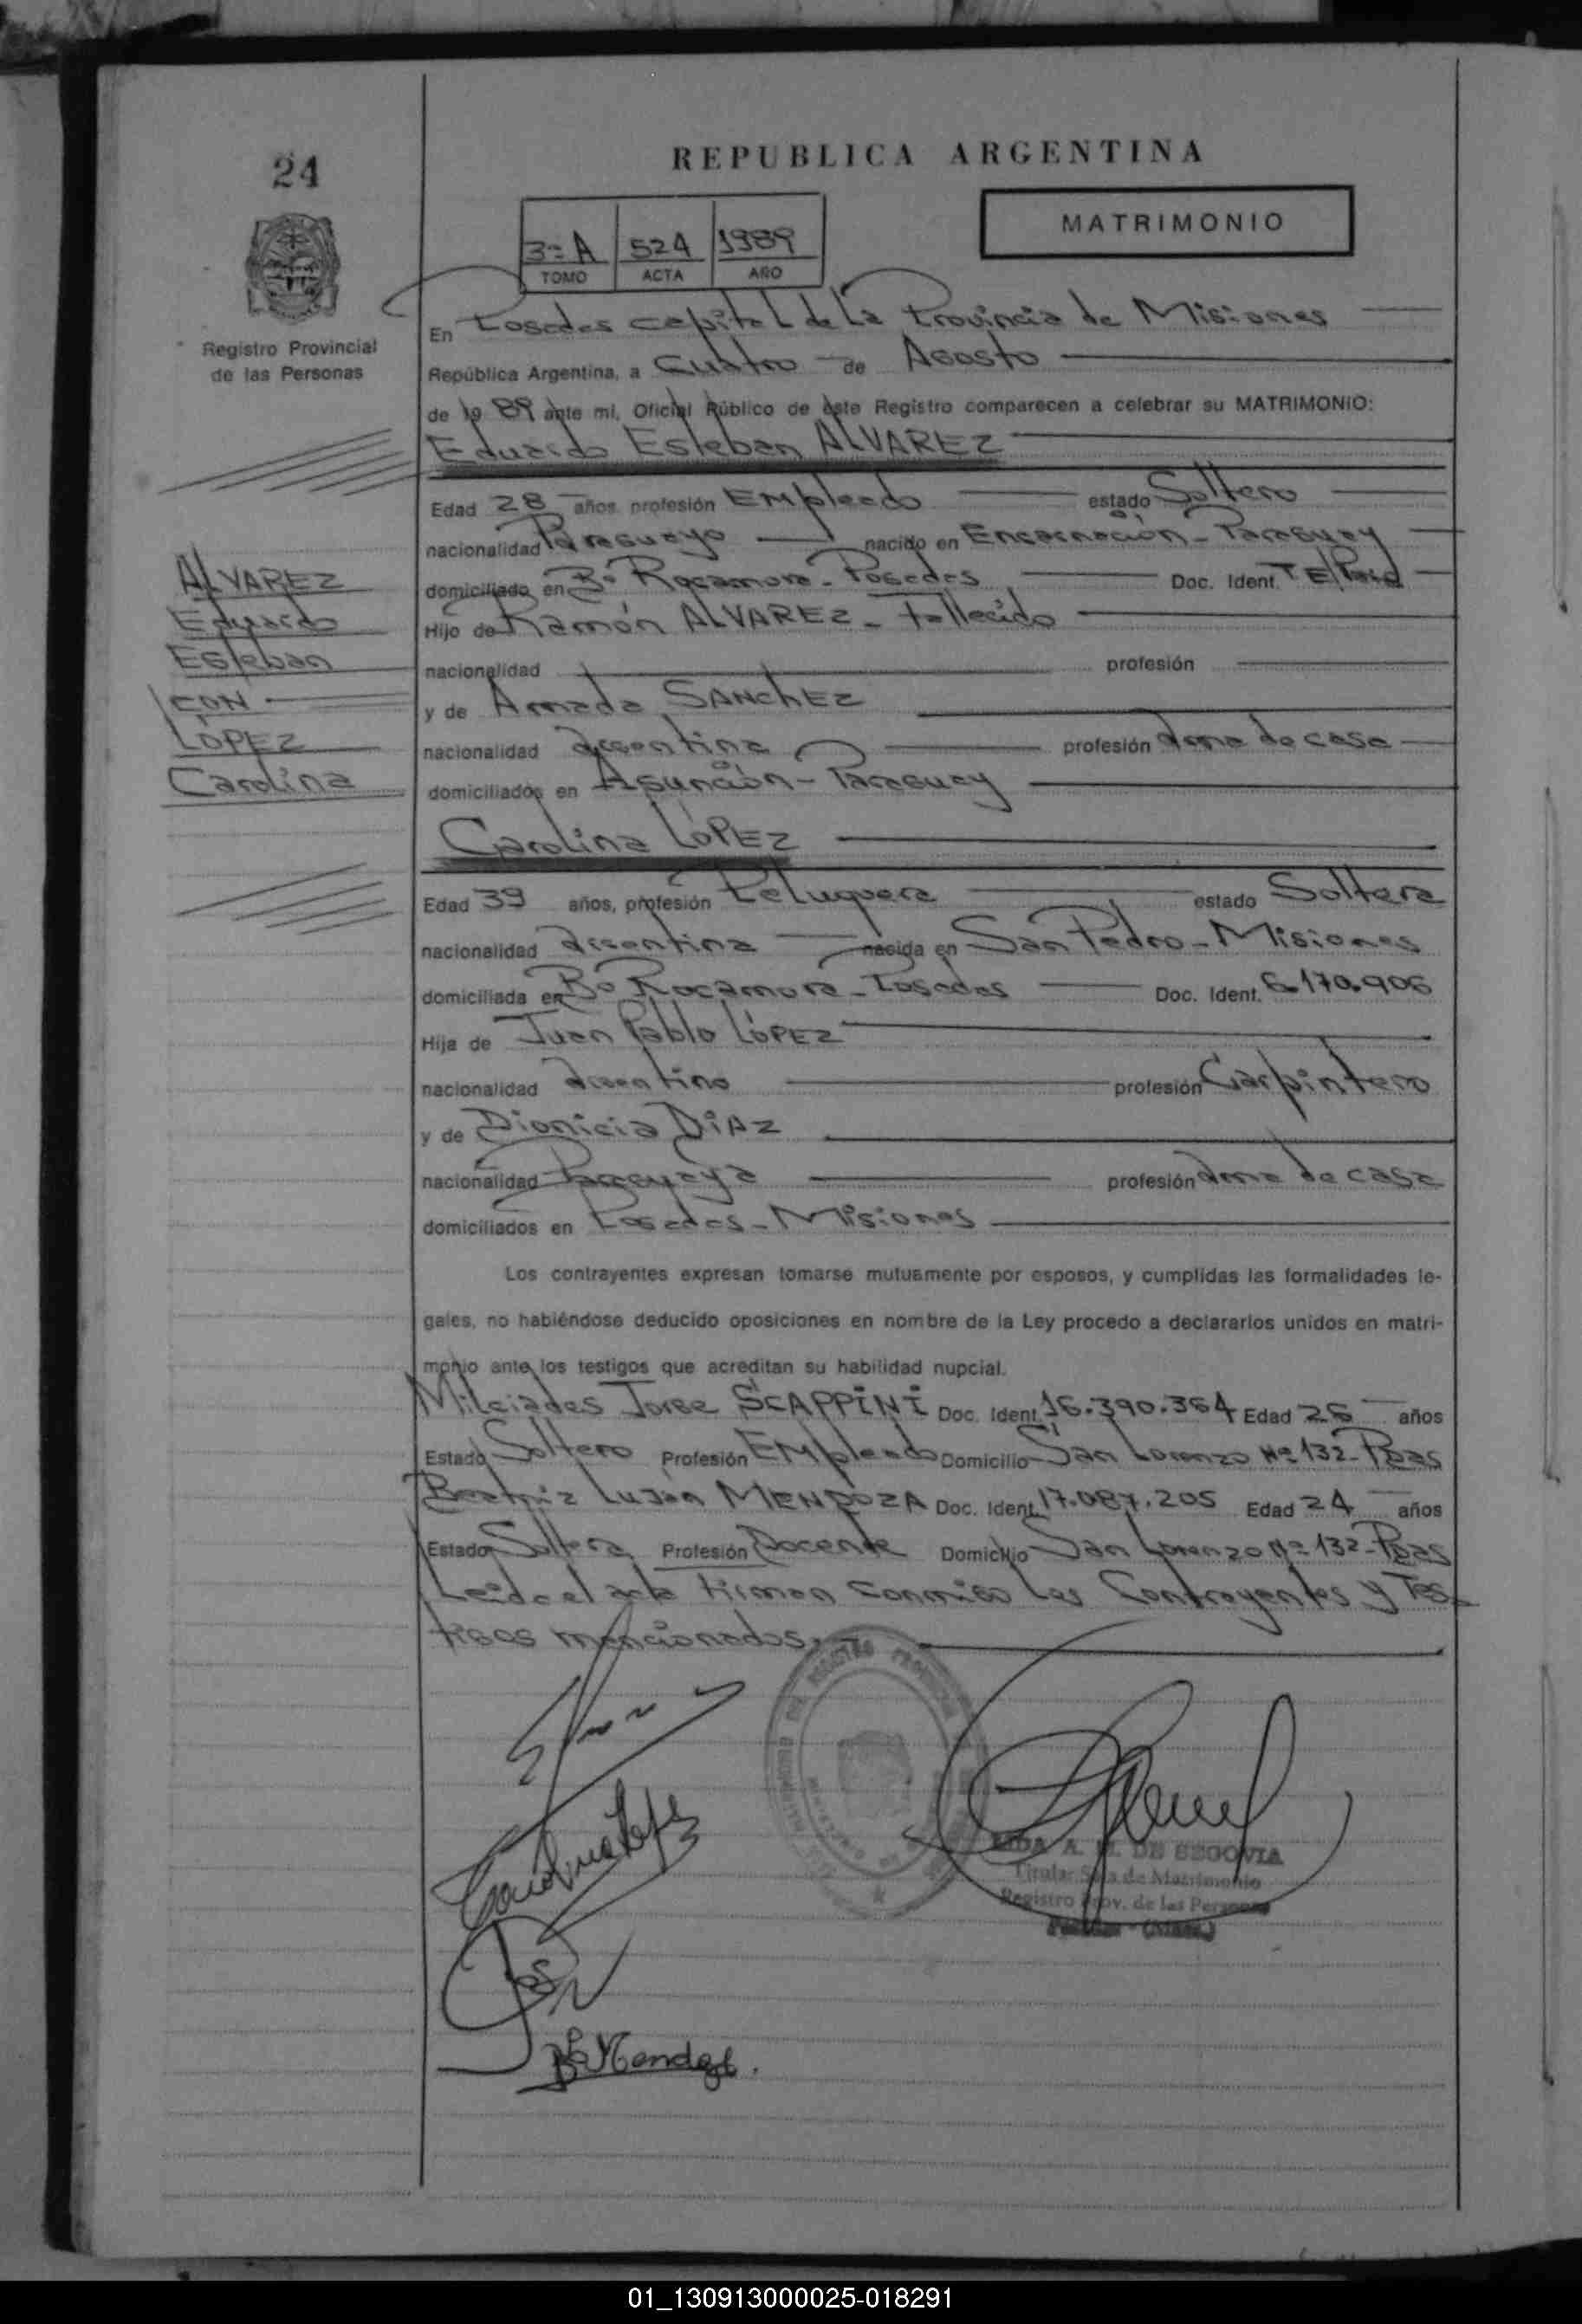 24
REPUBLICA ARGENTINA
MATRIMONIO
3=A 524 1989
TOMO ACTA AÑO
Registro Provincial
de las Personas
En Posadas capital de la Provincia de Misiones
República Argentina, a Cuatro de Agosto
de 19 89 ante mi, Oficial Público de este Registro comparecen a celebrar su MATRIMONIO:
Eduardo Esteban ALVAREZ
Edad 28 años profesión Empleado estado Soltero
nacionalidad Paraguayo nacido en Encarnación - Paraguay
domiciliado en Bº Rocamora - Posadas Doc. Ident.
Hijo de Ramón ALVAREZ - Fallecido
nacionalidad profesión
y de Amada SANCHEZ
nacionalidad Argentina profesión Ama de casa
domiciliados en Asunción - Paraguay
ALVAREZ
Eduardo
Esteban
CON
LÓPEZ
Carolina
Carolina LÓPEZ
Edad 39 años, profesión Peluquera estado Soltera
nacionalidad Argentina nacida en San Pedro - Misiones
domiciliada en Bº Rocamora - Posadas Doc. Ident. 6.170.906
Hija de Juan Pablo LÓPEZ
nacionalidad Argentino profesión Carpintero
y de Dionicia DÍAZ
nacionalidad Paraguaya profesión Ama de casa
domiciliados en Posadas - Misiones
Los contrayentes expresan tomarse mutuamente por esposos, y cumplidas las formalidades le-
gales, no habiéndose deducido oposiciones en nombre de la Ley procedo a declararlos unidos en matri-
monio ante los testigos que acreditan su habilidad nupcial.
Milciades Jorge SCAPPINI Doc. Ident. 16.390.364 Edad 26 años
Estado Soltero Profesión Empleado Domicilio San Lorenzo Nº 132 - Pdas
Beatriz Luján MENDOZA Doc. Ident. 17.087.205 Edad 24 años
Estado Soltera Profesión Docente Domicilio San Lorenzo Nº 132 - Pdas
Leída el acta firman conmigo los Contrayentes y Tes-
tigos mencionados.
Carolina López
A. M. DE SEGOVIA
Titular Sala de Matrimonio
Registro Prov. de las Personas
Posadas - (Mnes.)
01_130913000025-018291